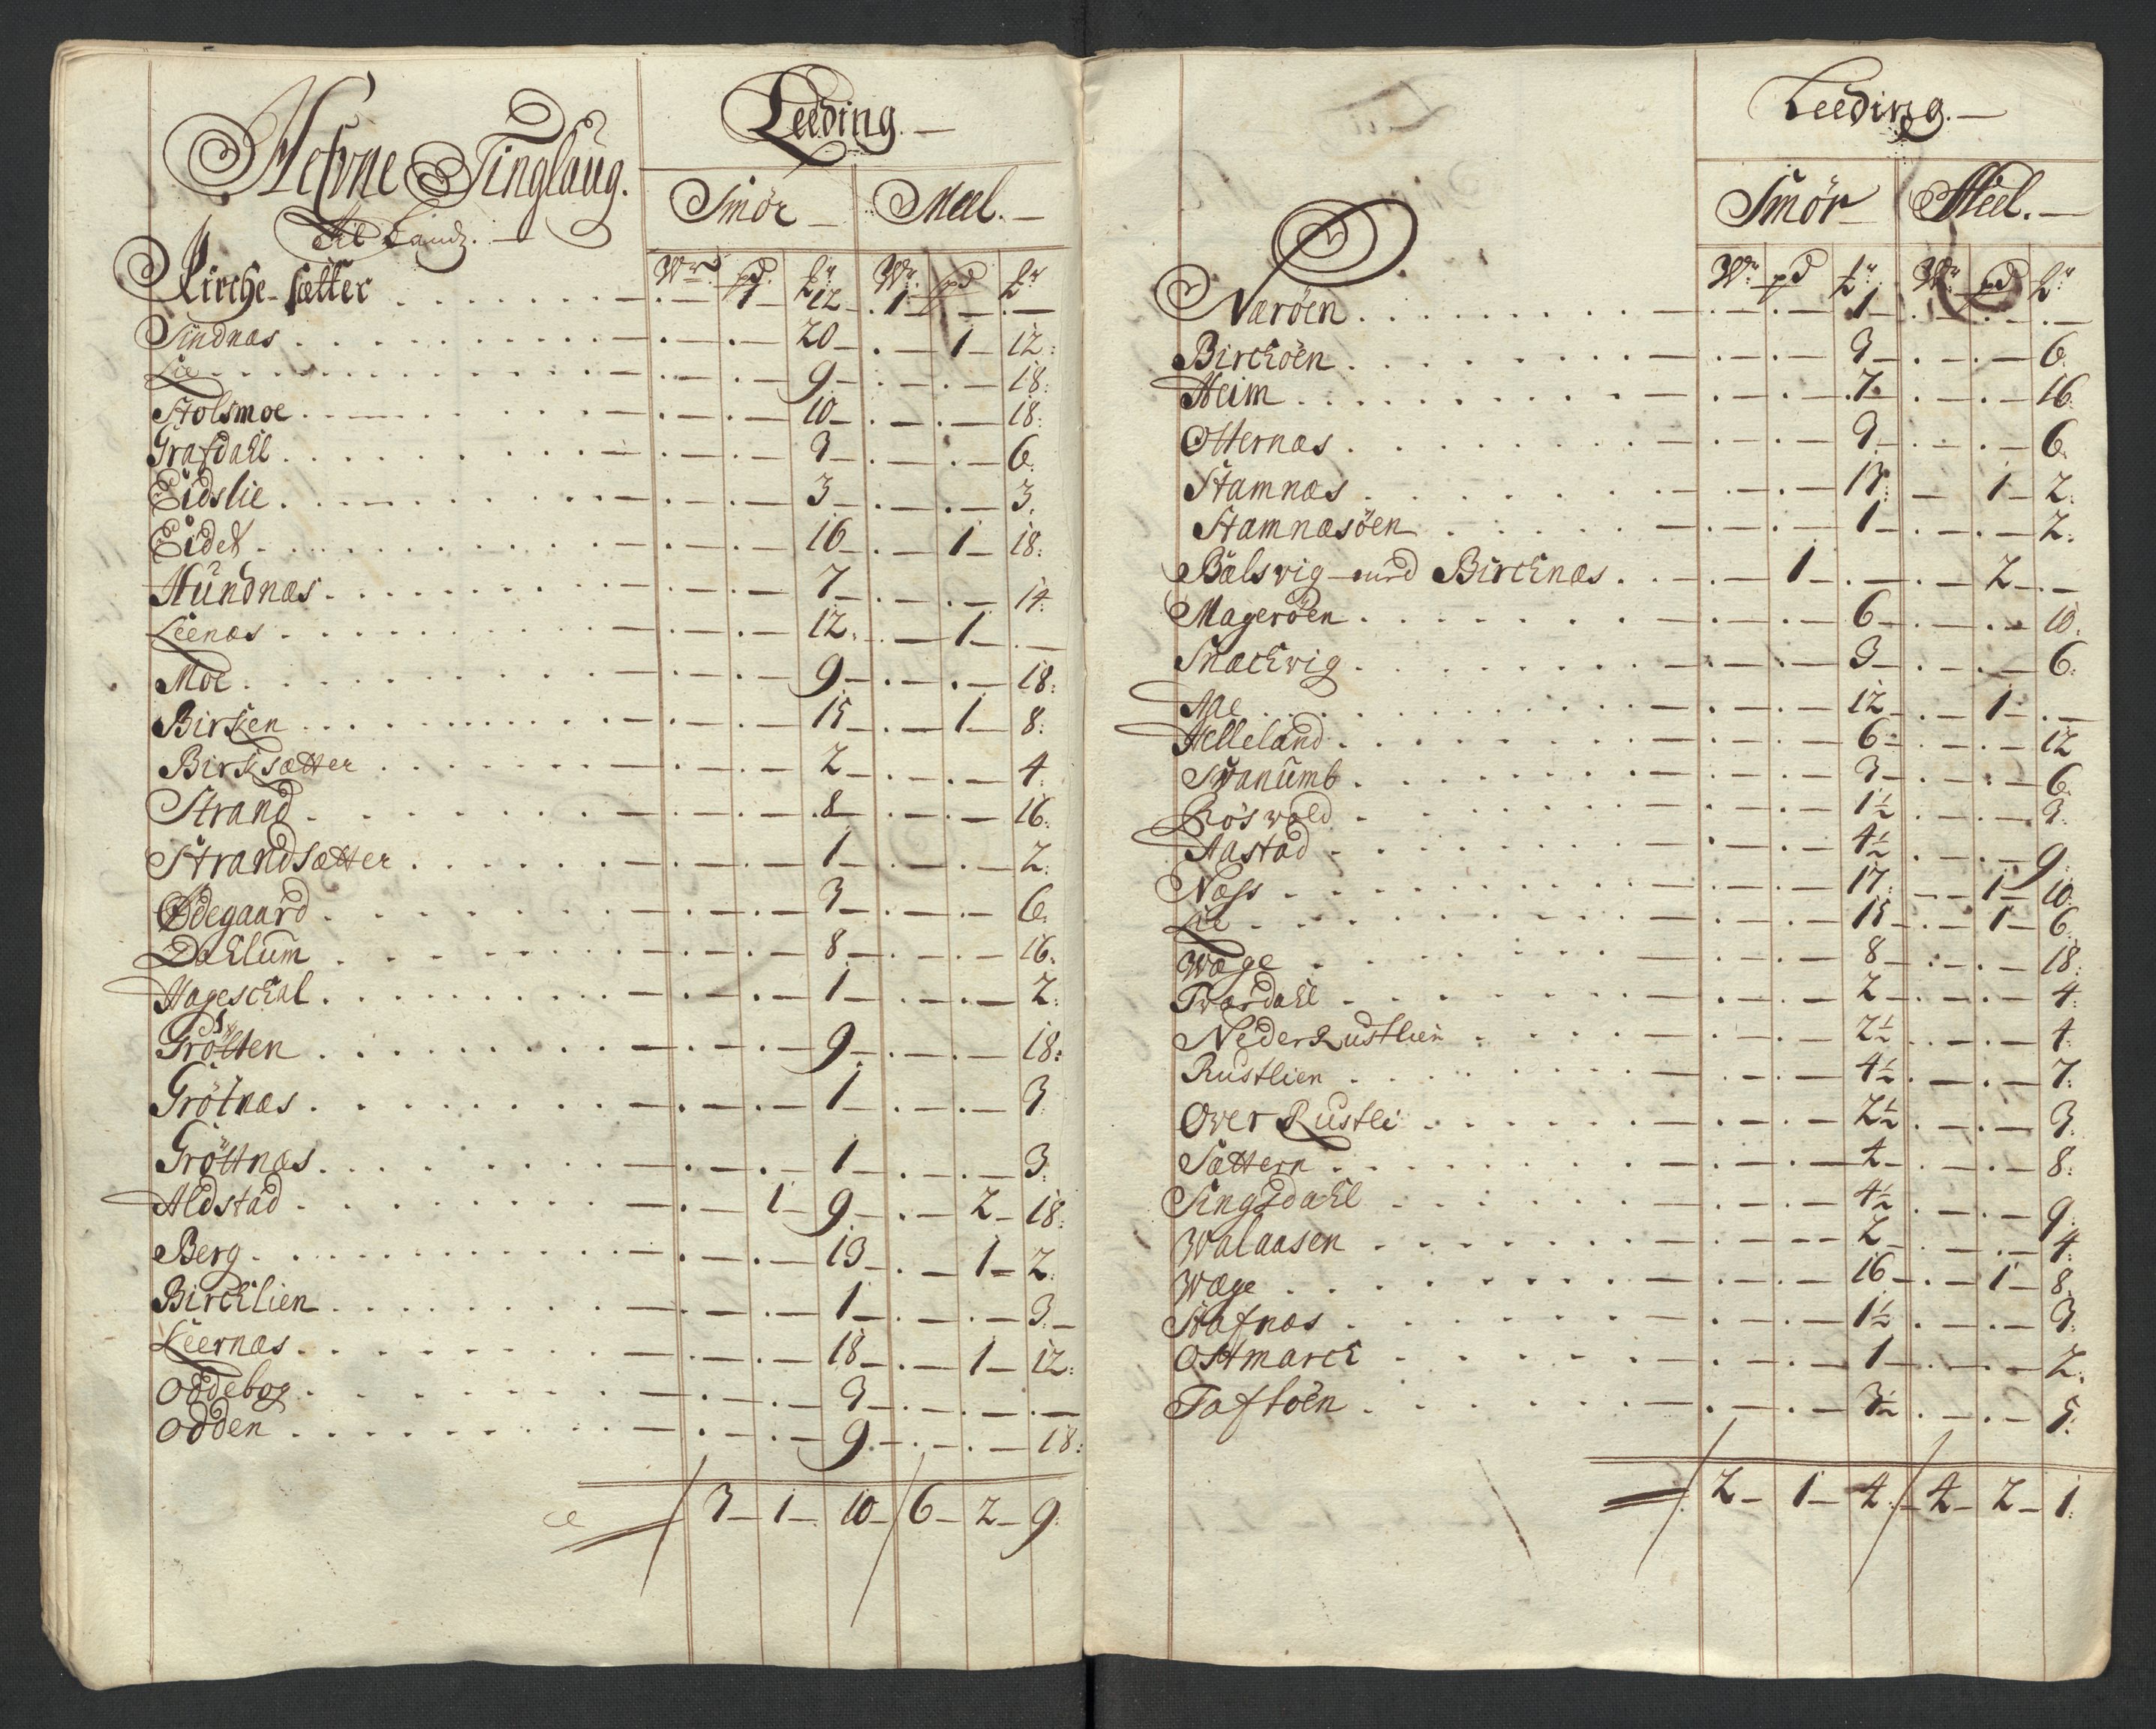 Hefvne Tinglaug.
Leeding.
Smör Meel.
Wr pd Lr Wr pd Lr
Kirche-sætter . . . — 1 — 12 — 1 — —
Sindnæs . . . 20 — . — 1 — 12:
Lie . . . 9 — . — . — 18:
Stolsmoe . . . 10 — . — . — 18:
Grafdahl . . . 3 — . — . — 6.
Eidslie . . . 3 — . — . — 3.
Eidet . . . 16 — . — 1 — 18:
Hundnæs . . . 7 — . — . — 14:
Leenæs . . . 12 . — 1 — . —
Moe . . . 9 — . — . — 18:
Birken . . . 15 — . — 1 — 8:
Birksætter . . . 2 — . — . — 4:
Strand . . . 8 — . — . — 16:
Strandsætter . . . 1 — . — . — 2:
Ødegaard . . . 3 — . — . — 6.
Dahlum . . . 8 — . — . — 16.
Hageschal . . . 1 — . — . — 2:
Grötten . . . 9 — . — . — 18:
Grötnæs . . . 1 — . — . — 3
Gröttnæs . . . 1 — . — . — 3
Aldstad . . . 1 — 9 — . — 2 — 18:
Berg . . . 13 — . — 1 — 2.
Birchlien . . . 1 — . — . — 3. —
Leernæs . . . 18 — . — 1 — 12:
Oddebog . . . 3 — . — . — . —
Odden . . . 9 — . — . — 18:
3 — 1 — 10 — 6 — 2 — 9:
Leeding.
Smör Meel.
Wr pd Lr Wr pd Lr
Naröen . . . 1 — . — . — . —
Birchöen . . . 3 — . — . — 6.
Heim . . . 7 . — . — 16.
Otternæs . . . 3 — . — . — 6.
Stamnæs . . . 13: — 1 — 2:
Stamnæsöen . . . 1 — . — . — 2:
Bælsvig med Birchnæs . . . 1 — . — . — 2 — . —
Mageröen . . . 6 — . — . — 10.
Snachvig . . . 3 — . — . — 6:
Aae . . . 12 — . — 1 — . —
Helleland . . . 6 — . — . — 12
Svanumb . . . 3 — . — . — 6.
Rösvold . . . 1½ . — . — 3.
Aastad . . . 4½ . — . — 9:
Næss . . . 17: — 1 — 10:
Lie . . . 15 — . — 1 — 6:
Wæge . . . 8 — . — . — 18:
Tværdahl . . . 2 — . — . — 4:
Neder Rustlien . . . 2½ . — . — 4:
Rustlien . . . 4½ . — . — 7:
Over Rustli . . . 2½ . — . — 3:
Sættern . . . 4 — . — . — 8:
Singsdahl . . . 4½ . — . — 9:
Walaasen . . . 2 — . — . — 4:
Wæge . . . 16 — . — 1 — 8.
Stafnæs . . . 1½ — . — . — 3:
Ostmarch . . . 1 — . — . — 2.
Taftöen . . . 3½ . — . — 5:
2 — 1 — 4. — 4 — 2 — 1: